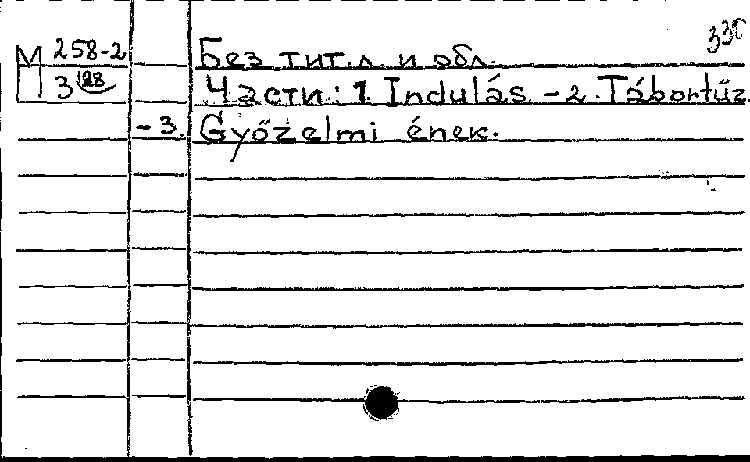 330
М 258-2 Без тит. л. и обл.
3 Части: 1. Indulás - 2. Tábortűz.
- 3. Győzelmi ének.